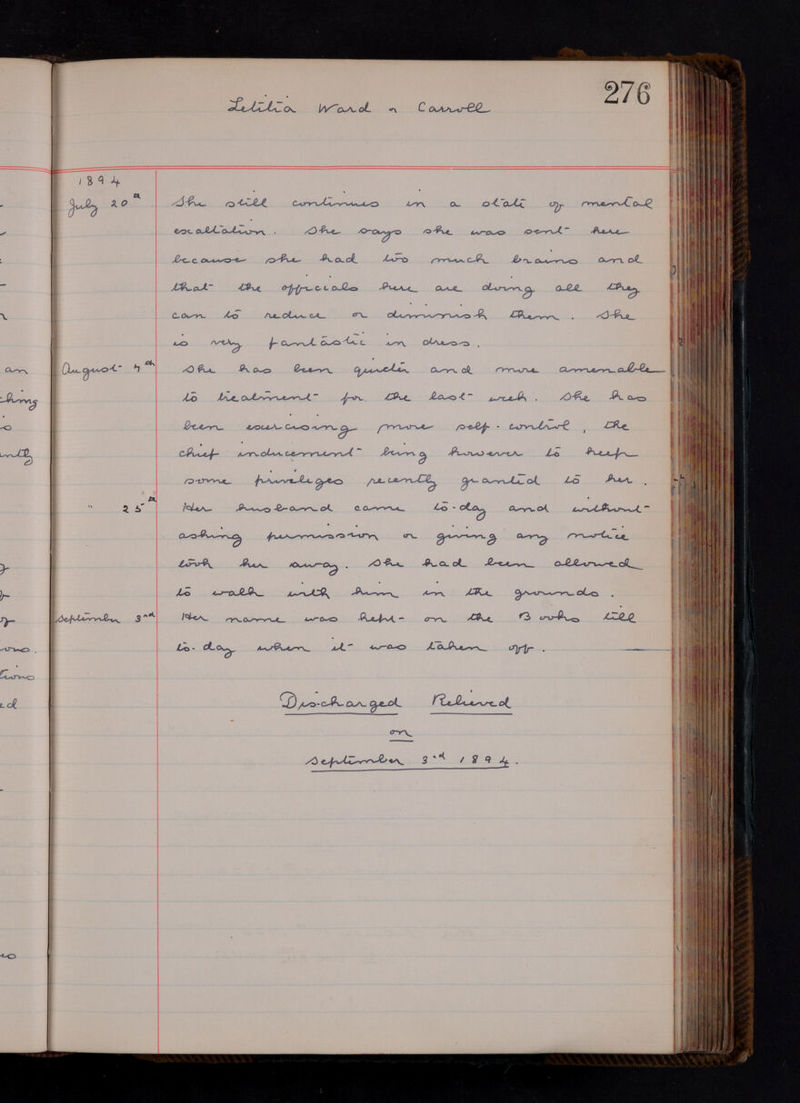 276
Letitia Ward or Carroll
1894
July 20th She still continues in a state of mental
exaltation. She says she was sent here
because she had too much brains and
that the officials here are doing all they
can to reduce or diminish them. She
is very fantastic in dress.
August 7th She has been quieter and more amenable
to treatment for the last week. She has
been exercising more self-control, the
chief inducement being however to keep
some privileges recently granted to her.
" 25th Her husband came to-day and without
asking permission or giving any notice
took her away. She had been allowed
to walk with him in the grounds.
September 3rd Her name was kept on the Books till
to-day when it was taken off.
Discharged Relieved
on
September 3rd 1894.